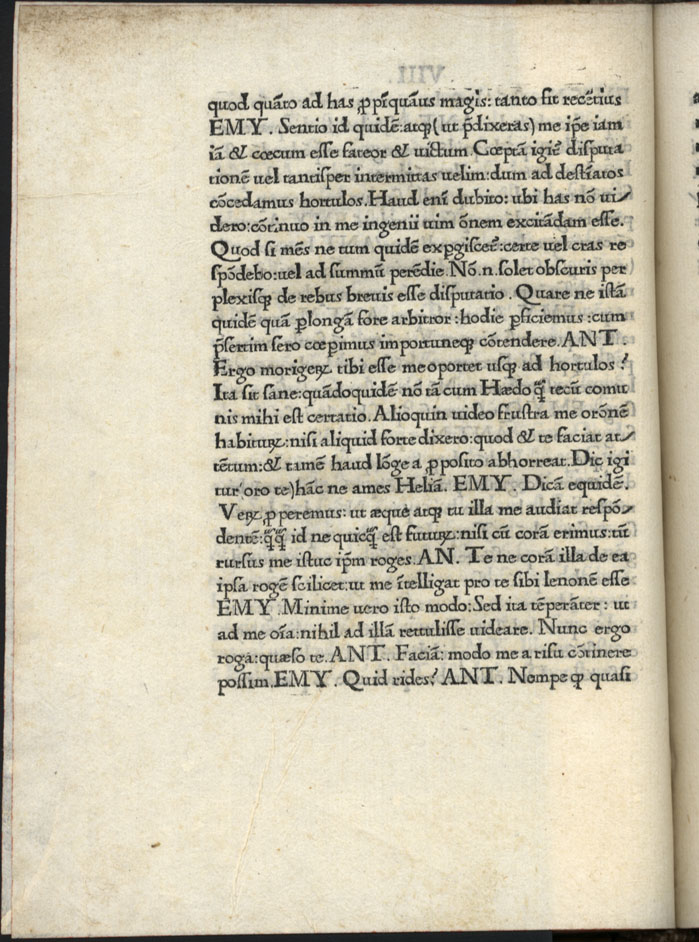 quod quāto ad has ꝓpīquāuus magis: tanto fit recētius
EMY. Sentio id quidē:atqꝫ( ut p̄dixeras) me ip̄e iam
iā & cœcum esse fateor & uictum.Cœptā igit̄ disputa
tionē uel tantisper intermittas uelim:dum ad destīatos
cōcedamus hortulos.Haud eni̅ dubito: ubi has nō ui⸗
dero:cōtinuo in me ingenii uim ōnem excitādam esse.
Quod si mēs ne tum quidē exꝑgiscet̄:certe uel cras re
spōdebo:uel ad summū perēdie.Nō.n.solet obscuris per
plexisqꝫ de rebus breuis esse disputatio. Quare ne istā
quidē quā ꝑlongā fore arbitror:hodie ꝑficiemus:cum
p̄sertim sero cœperimus importuneqꝫ cōtendere.ANT.
Ergo morigeꝝ tibi esse me oportet usqꝫ ad hortulos?
Ita sit sane:quādoquidē nō tā cum Hædo q̄ꝫ tecū comu
nis mihi est certatio.Alioquin uideo frustra me oronē
habituꝝ:nisi aliquid forte dixero:quod & te faciat at⸗
tētum:& tamē haud lōge a ꝓposito abhorreat.Dic igi
tur(oro te)hāc ne ames Heliā. EMY. Dicā equidē.
Veꝝ ꝓperemus: ut æque atqꝫ tu illa me audiat respō⸗
dentē:q̄ꝫq̄ꝫ id ne quicq̄ꝫ est futuꝝ:nisi cū corā erimus:tū
rursus me istuc ip̄m roges.AN. Te ne corā illa de ea
ipsa rogē scilicet:ut me ītelligat pro te sibi lenonē esse
EMY.Minime uero isto modo:Sed ita tēperāter: ut
ad me oīa:nihil ad illā rettulisse uideare. Nunc ergo
roga:quæso te.ANT. Faciā: modo me a risu cōtinere
possim.EMY. Quid rides?ANT. Nempe qꝫ quasi